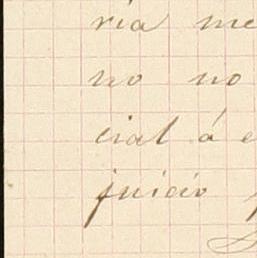 ria me
no no
cial á e
juicio